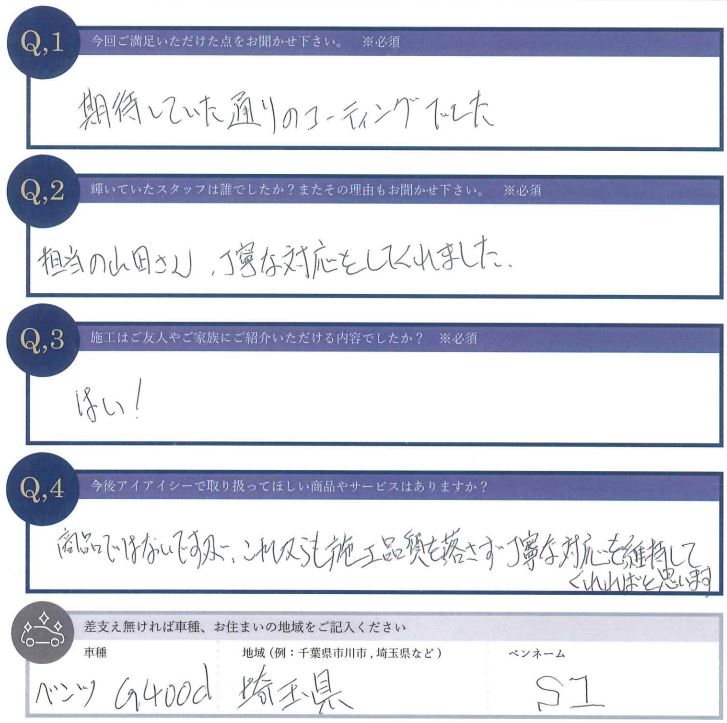 Q,1 今回ご満足いただけた点をお聞かせ下さい。 ※必須
期待していた通りのコーティングでした
Q,2 輝いていたスタッフは誰でしたか？またその理由もお聞かせ下さい。 ※必須
担当の山田さん、丁寧な対応をしてくれました.
Q,3 施工はご友人やご家族にご紹介いただける内容でしたか？ ※必須
はい！
Q,4 今後アイアイシーで取り扱ってほしい商品やサービスはありますか？
商品ではないですが、これからも施工品質を落さず丁寧な対応を維持して
くれればと思います
差支え無ければ車種、お住まいの地域をご記入ください
車種 地域（例：千葉県市川市,埼玉県など） ペンネーム
ベンツ G400d 埼玉県 S1